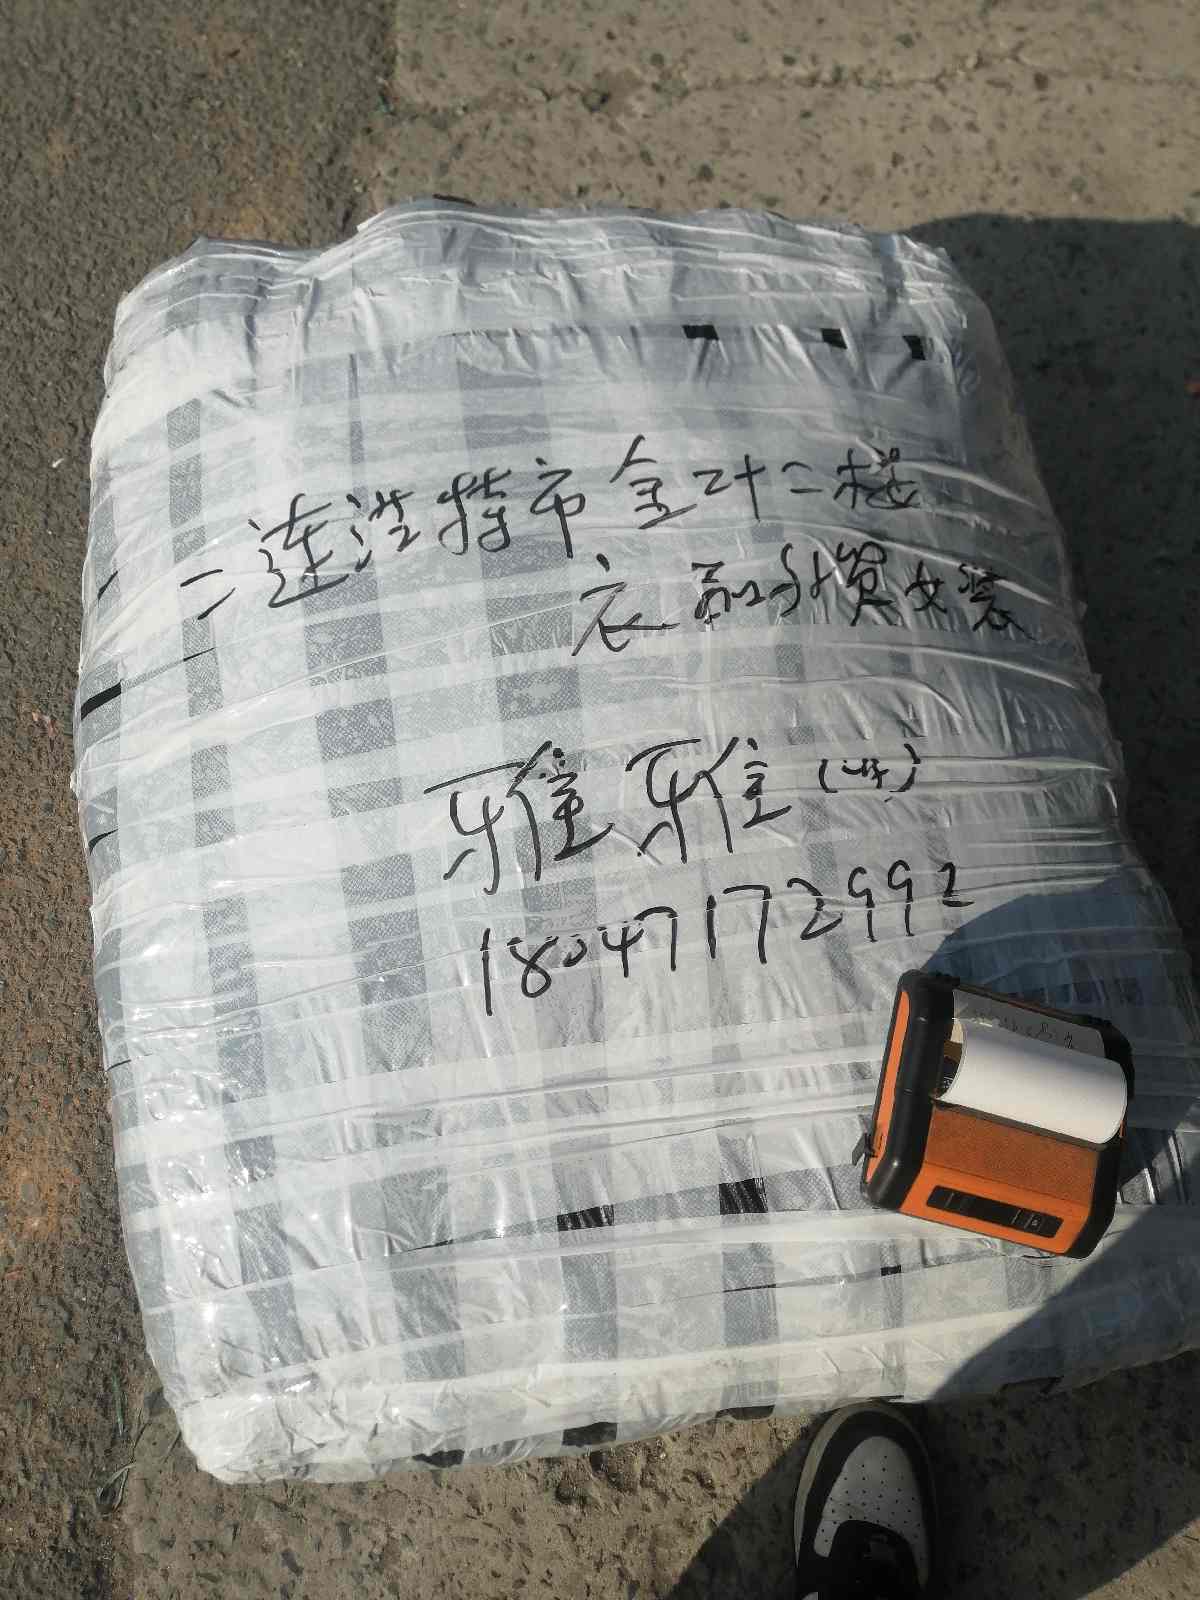 二连浩特市金叶二楼
衣品外贸女装
雅雅(收)
18047172992